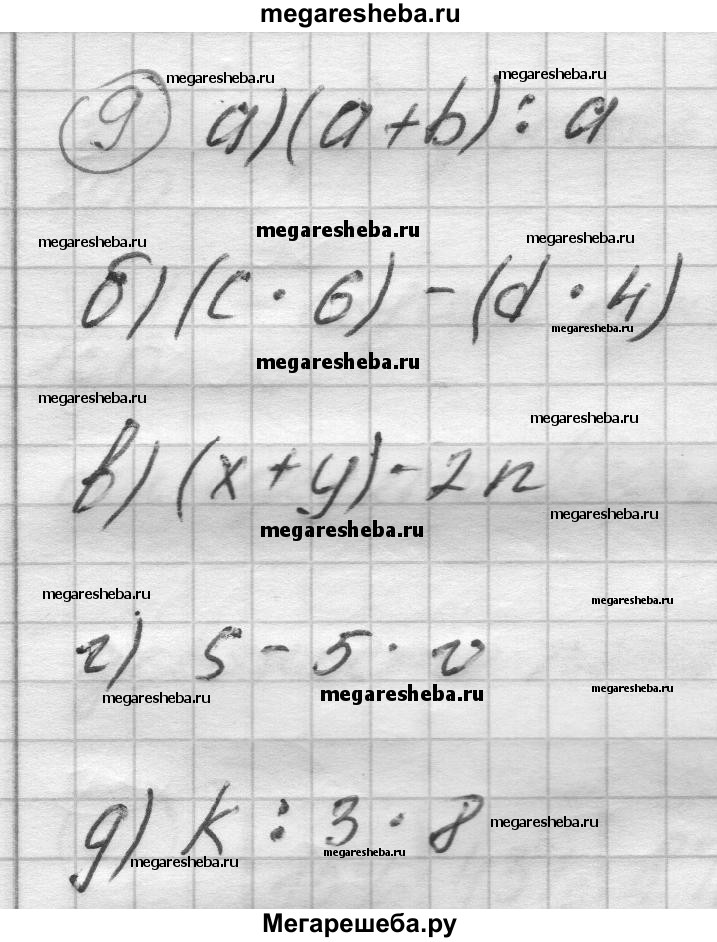 megaresheba.ru
megaresheba.ru megaresheba.ru
9 а) (a + b) : a
megaresheba.ru
megaresheba.ru megaresheba.ru
б) (c · 6) - (d · 4)
megaresheba.ru
megaresheba.ru
megaresheba.ru megaresheba.ru
в) (x + y) - 2n
megaresheba.ru
megaresheba.ru
megaresheba.ru megaresheba.ru
г) s - 5 · v
megaresheba.ru megaresheba.ru megaresheba.ru
д) k : 3 · 8 megaresheba.ru
megaresheba.ru megaresheba.ru
Мегарешеба.ру